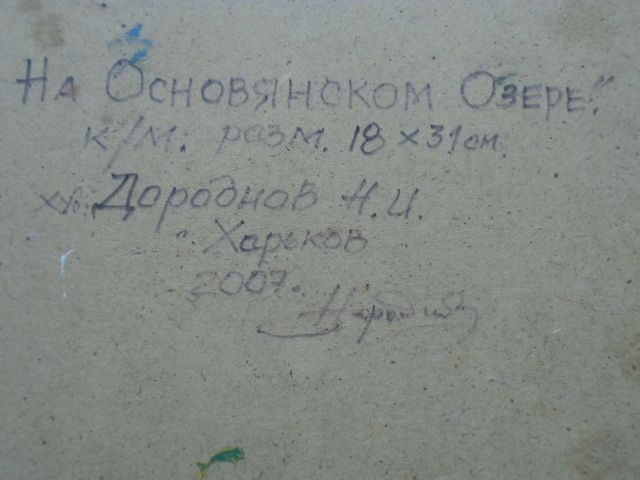 На Основянском Озере."
к/м: разм. 18 х 31 см.
худ. Дороднов Н.И.
Харьков
2007.